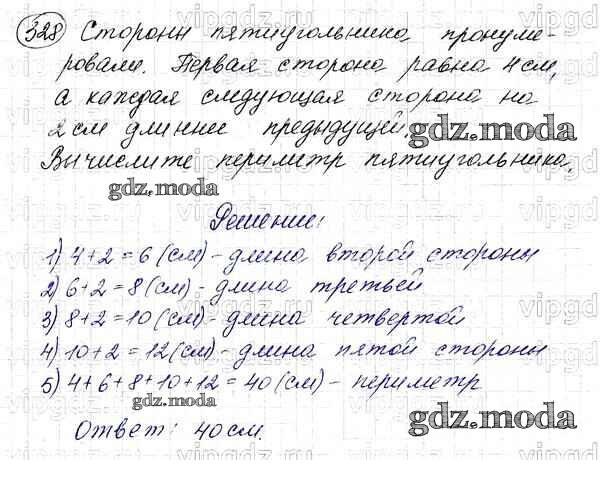 328 Стороны пятиугольника пронуме-
ровали. Первая сторона равна 4 см,
а каждая следующая сторона на
2 см длиннее предыдущей.
Вычислите периметр пятиугольника.
gdz.moda
gdz.moda
Решение:
1) 4+2=6 (см) - длина второй стороны
2) 6+2=8 (см) - длина третьей
3) 8+2=10 (см) - длина четвертой
4) 10+2=12 (см) - длина пятой стороны
5) 4+6+8+10+12=40 (см) - периметр
gdz.moda
gdz.moda
Ответ: 40 см.